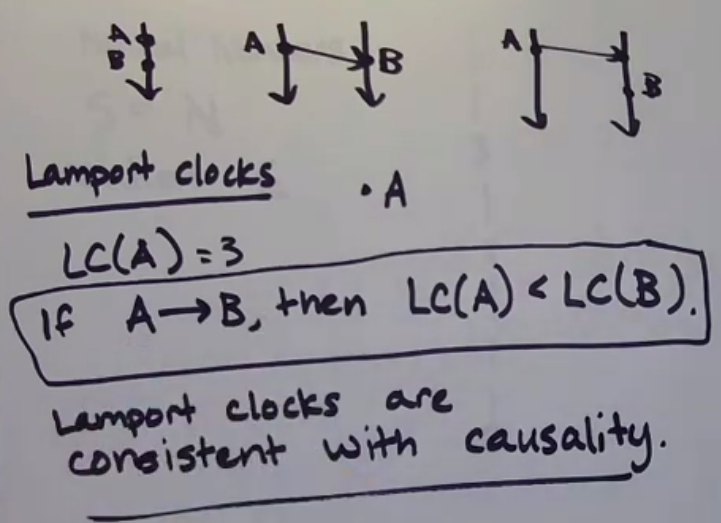 A
B
A
B
A
B
Lamport clocks
• A
LC(A)=3
If A→B, then LC(A) < LC(B).
Lamport clocks are
consistent with causality.